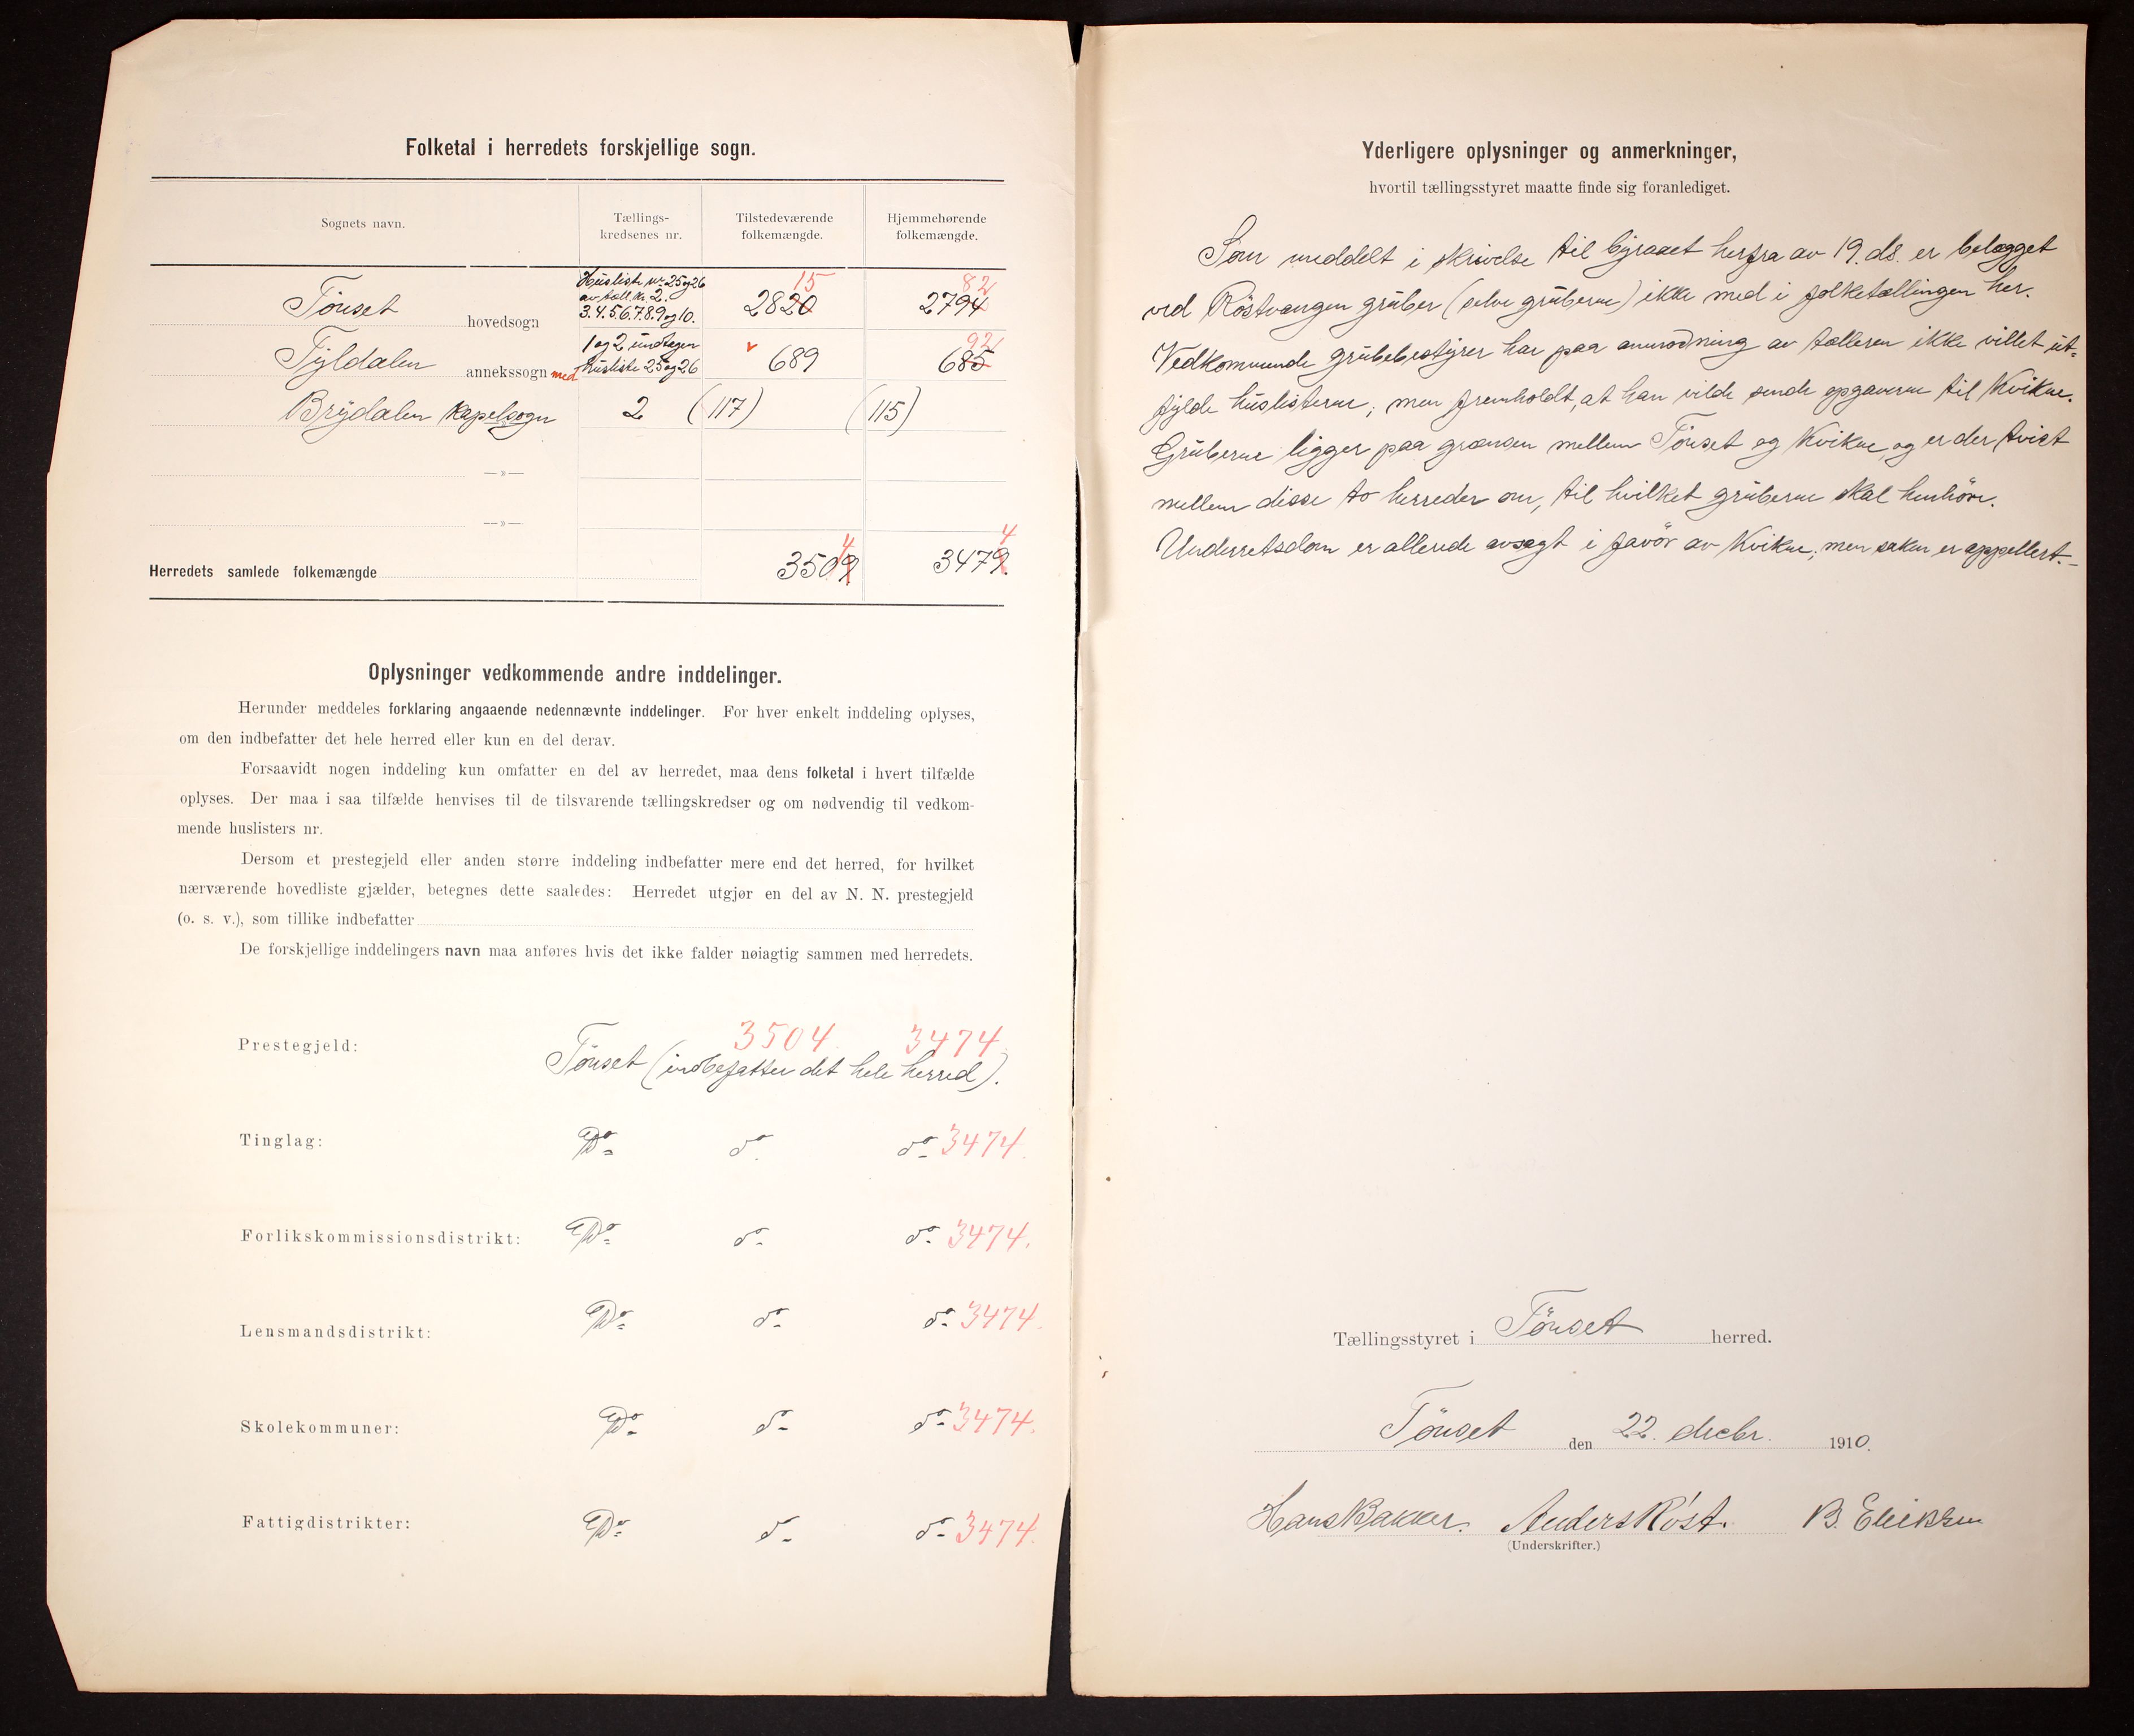 Folketal i herredets forskjellige sogn.
Sognets navn.
Tællings-
kredsenes nr.
Tilstedeværende
folkemængde.
Hjemmehørende
folkemængde.
Tönset hovedsogn
Husliste nr. 25 og 26
av tæll.kr. 2.
3. 4. 5. 6. 7. 8. 9 og 10.
15
2820
82
2794
Tyldalen annekssogn med
1 og 2 undtagen
husliste 25 og 26
689
92
685
Brydalen Kapelsogn 2 (117) (115)
— » —
— » —
Herredets samlede folkemængde
4
3509
4
3479.
Oplysninger vedkommende andre inddelinger.
Herunder meddeles forklaring angaaende nedennævnte inddelinger. For hver enkelt inddeling oplyses,
om den indbefatter det hele herred eller kun en del derav.
Forsaavidt nogen inddeling kun omfatter en del av herredet, maa dens folketal i hvert tilfælde
oplyses. Der maa i saa tilfælde henvises til de tilsvarende tællingskredser og om nødvendig til vedkom-
mende huslisters nr.
Dersom et prestegjeld eller anden større inddeling indbefatter mere end det herred, for hvilket
nærværende hovedliste gjælder, betegnes dette saaledes: Herredet utgjør en del av N. N. prestegjeld
(o. s. v.), som tillike indbefatter
De forskjellige inddelingers navn maa anføres hvis det ikke falder nøiagtig sammen med herredets.
3504 3474
Prestegjeld: Tönset (indbefatter det hele herred).
Tinglag: Do do do 3474.
Forlikskommissionsdistrikt: Do do do 3474.
Lensmandsdistrikt: Do do do 3474.
Skolekommuner: Do do do 3474.
Fattigdistrikter: Do do do 3474.
Yderligere oplysninger og anmerkninger,
hvortil tællingsstyret maatte finde sig foranlediget.
Som meddelt i skrivelse til byraaet herfra av 19. ds. er belægget
ved Röstvangen gruber (selve gruberne) ikke med i folketællingen her.
Vedkommende grubebestyrer har paa anmodning av tælleren ikke villet ut-
fylde huslisterne; men fremholdt, at han vilde sende opgaverne til Kvikne.
Gruberne ligger paa grænsen mellem Tönset og Kvikne, og er der tvist
mellem disse to herreder om, til hvilket gruberne skal henhöre.
Underretsdom er allerede avsagt i favör av Kvikne; men saken er appellert. –
Tællingsstyret i Tönset herred.
Tönset den 22. decbr. 1910.
Hans Bakken. Anders Röst.
(Underskrifter.)